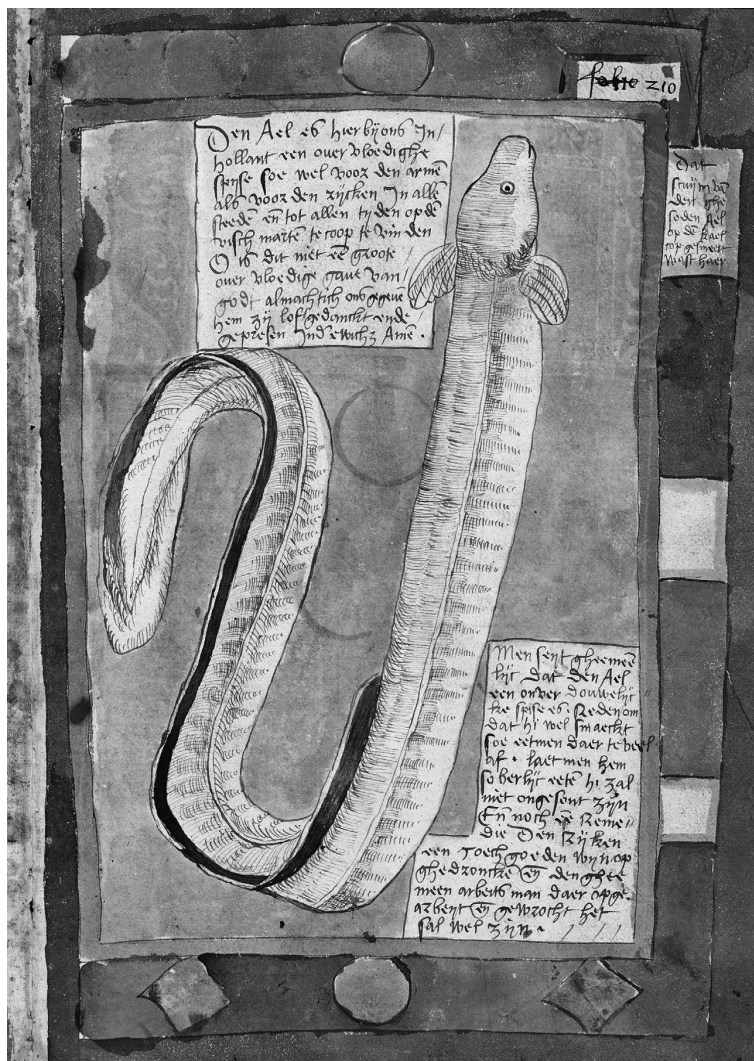 folio 210
Den Ael es hier bij ons In/
hollant een over vloedighe
spijse soe wel voor den armē
als voor den rijcken In allē
steedē eñ tot allen tijden op dē
visch martē te coop te vinden
O is dit niet eē groote
over vloedige gave van /
godt almachtich ons gegeuē
hem zij lof gedanckt ende
gepresen Ind ewich3 Amē .
Dat
schuijm vā
den ghe
soden Ael
op dē kael
cop gesmeert
wast haer
Men seijt gheemeē
lijc dat den Ael
een onver douwelijc
ke spise es Redenom
dat hi wel smaeckt
soe eetmen daer te veel
af . laet men hem
soberlijc eetē hi zal
niet ongesont zijn
En noch eē Reme
die Den Rijken
een Toech goeden wijn op
ghedroncke eñ den ghee
meen arbeits man daer op ge
arbeijt eñ gewrocht het
sal wel zijn .